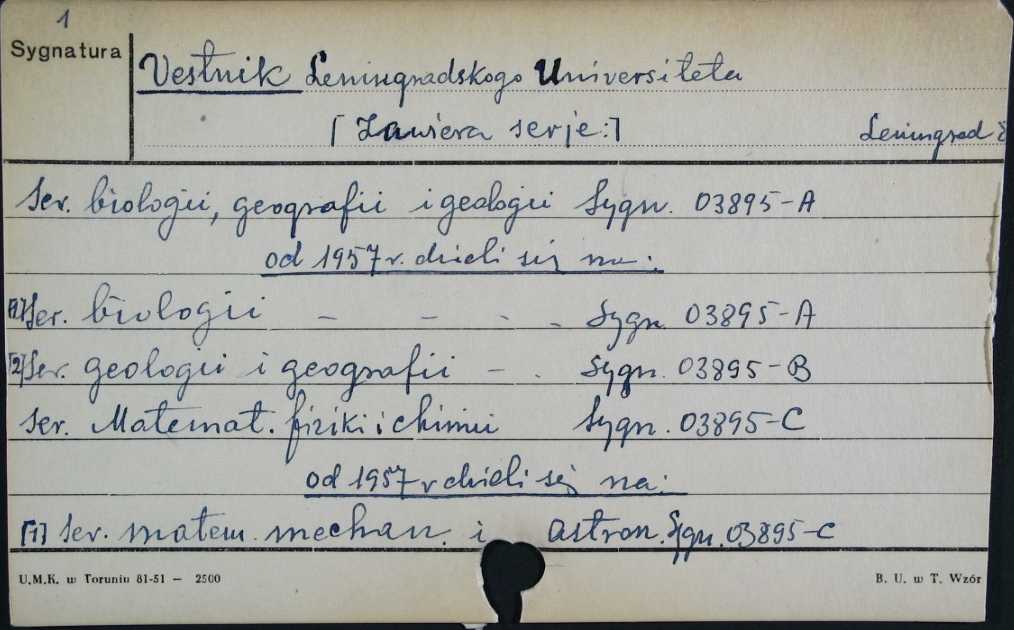 1
Sygnatura
Vestnik Leningradskogo Universiteta
[Zawiera serje:] Leningrad
Ser. biologii, geografii i geologii Sygn. 03895-A
od 1957 r. dzieli się na:
[1] Ser. biologii - - - - Sygn. 03895-A
[2] Ser. geologii i geografii - . Sygn. 03895-B
Ser. Matemat. fiziki i chimii Sygn. 03895-C
od 1957 r dzieli się na:
[1] Ser. matem. mechan. i astron. Sygn. 03895-C
U.M.K. w Toruniu 81-51 — 2500 B. U. w T. Wzór